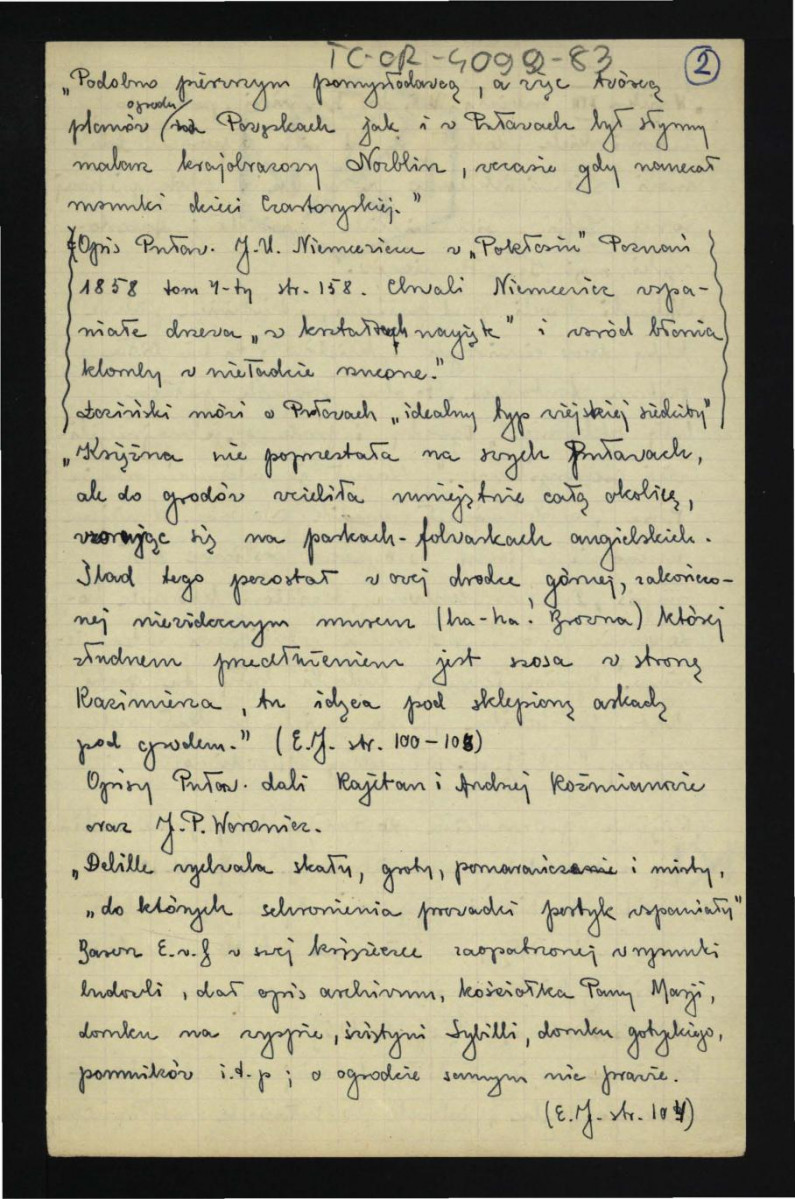 TC-OR-4099-83
2
„Podobno pierwszym pomysłodawcą, a więc twórcą
ogrodu
planów tak Powązkach jak i w Puławach był słynny
malarz krajobrazowy Norblin, wczasie gdy nauczał
rysunki dzieci Czartoryskiej."
Opis Puław. J.U. Niemcewicza w „Pokłosiu" Poznań
1858 tom 7-ty str. 158. Chwali Niemcewicz wspa-
niałe drzewa „w kształtach i wśród błonia
klomby w nieładzie rzucone."
Łoziński mówi o Puławach „idealny typ wiejskiej siedziby"
„Księżna nie poprzestała na swych Puławach,
ale do grodów wcieliła umiejętnie całą okolicę,
wzorując się na parkach-folwarkach angielskich.
Ślad tego pozostał w owej drodze górnej, zakończo-
nej niewidocznym murem (ha-ha! Browna) której
złudnem przedłużeniem jest szosa w stronę
Kazimierza, tu idąca pod sklepioną arkadą
pod ogrodem." (E.J. str. 100-103)
Opisy Puław. dali Kajetan i Andrzej Koźmianowie
oraz J.P. Woronicz.
„Delille wychwala skały, groty, pomarańczarnie i mirty,
„do których schronienia prowadzi portyk wspaniały"
Baron E.v.g w swej książeczce zaopatrzonej w rysunki
budowli, dał opis archivum, kościołka Panny Maryi,
domku na wyspie, świątyni Sybilli, domku gotyckiego,
pomników i.t.p; o ogrodzie samym nic prawie.
(E.J. str. 104)